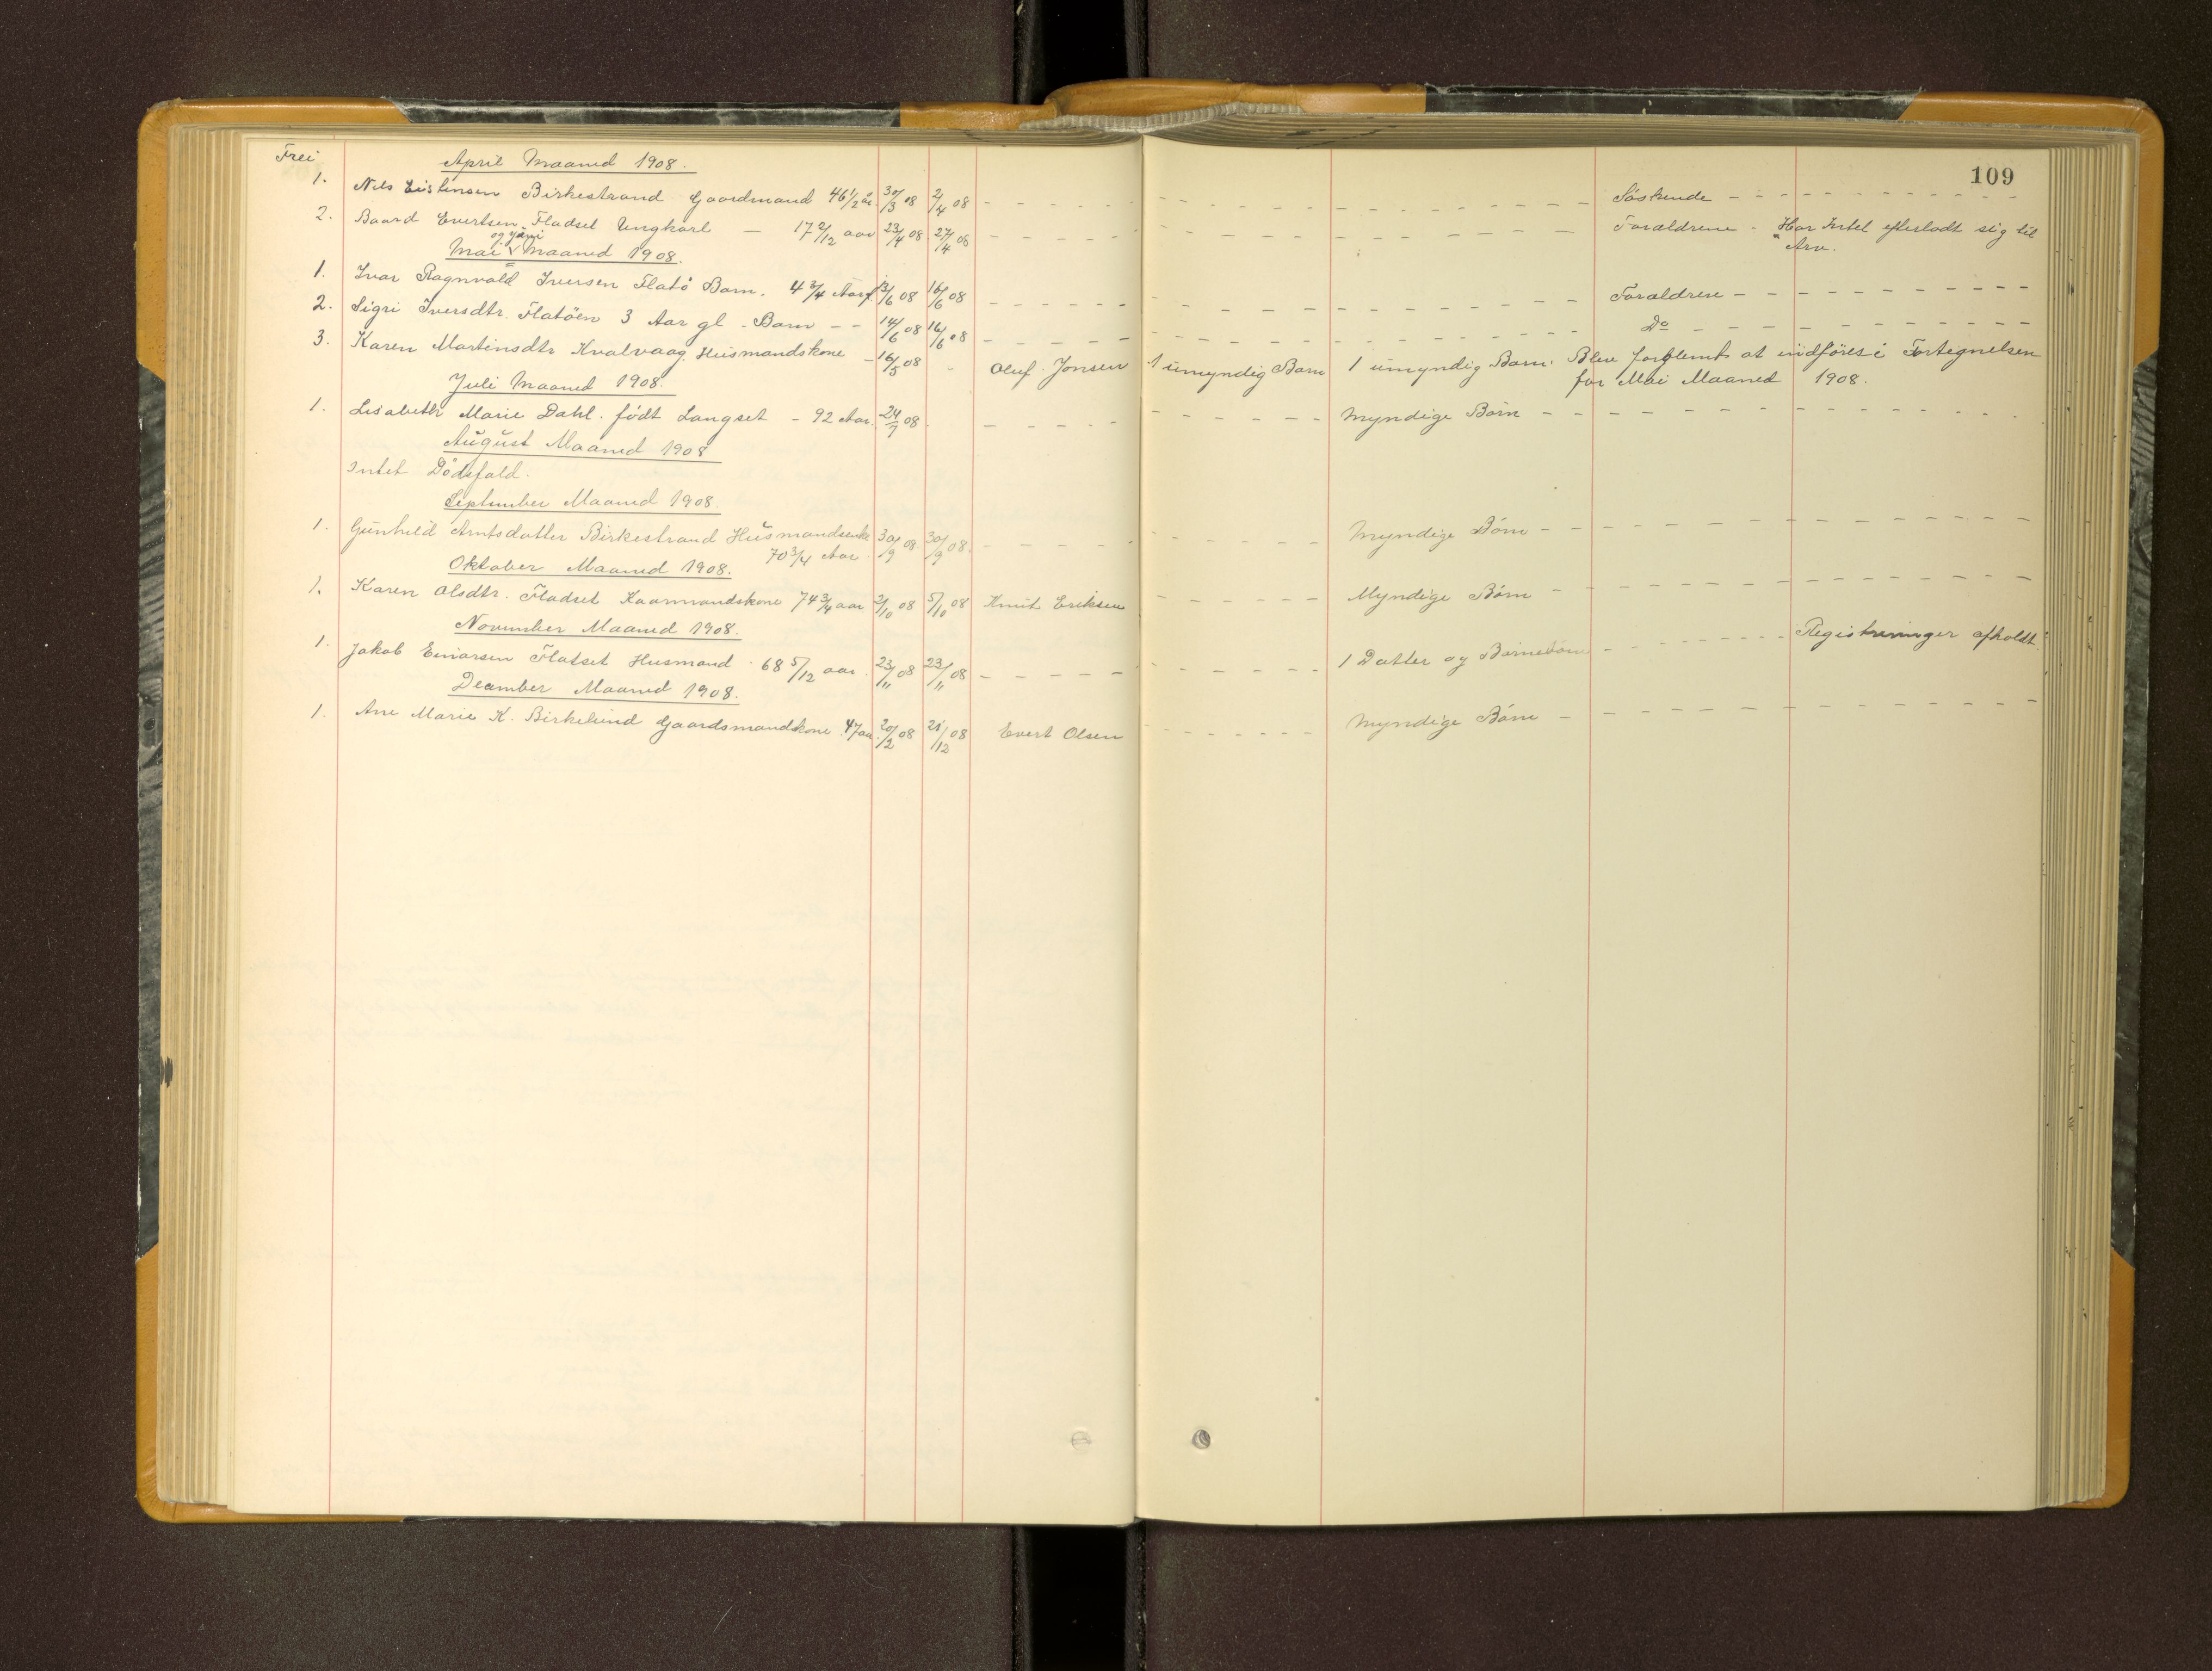 109
Frei
April Maaned 1908.
1. Nils Eistensen Birkestrand Gaardmand 46 1/2 år. 30/3 08 2/4 08 - - - Søskende - - -
2. Baard Evertsen Fladset Ungkarl — 17 2/12 aar 23/4 08 27/4 08 - - - Forældrene - Har Intet efterladt sig til
Arv.
og juni
Mai Maaned 1908.
1. Ivar Ragnvald Iversen Flatö Barn. 4 3/4 Aar 13/6 08 16/6 08 - - - Forældrene - - -
2. Sigri Iversdtr. Flatöen 3 Aar gl - Barn - - 14/6 08 16/6 08 - - - Do - - -
3. Karen Martinsdtr Kvalvaag Husmandskone - 16/5 08 - Oluf Jonsen 1 umyndig Barn 1 umyndig Barn. Blev forglemt at indföres i Fortegnelsen
for Mai Maaned 1908.
Juli Maaned 1908.
1. Lisabeth Marie Dahl. födt Langset - 92 Aar. 24/7 08 - - - Myndige Börn - - -
August Maaned 1908
Intet Dödsfald.
September Maaned 1908.
1. Gunhild Arntsdatter Birkestrand Husmandsenke 30/9 08. 30/9 08. - - - Myndige Börn - - -
70 3/4 Aar
Oktober Maaned 1908.
1. Karen Olsdtr. Fladset Kaarmandskone 74 3/4 aar 2/10 08 5/10 08 Knut Eriksen - - - Myndige Börn - - -
November Maaned 1908.
1. Jakob Einarsen Flatset Husmand 68 5/12 aar. 23/11 08 23/11 08 - - - 1 Datter og Barnebörn - - - Registreringer afholdt.
December Maaned 1908.
1. Ane Marie K. Birkelund Gaardsmandskone 47 aar. 20/12 08 21/12 08 Evert Olsen - - - Myndige Börn - - -